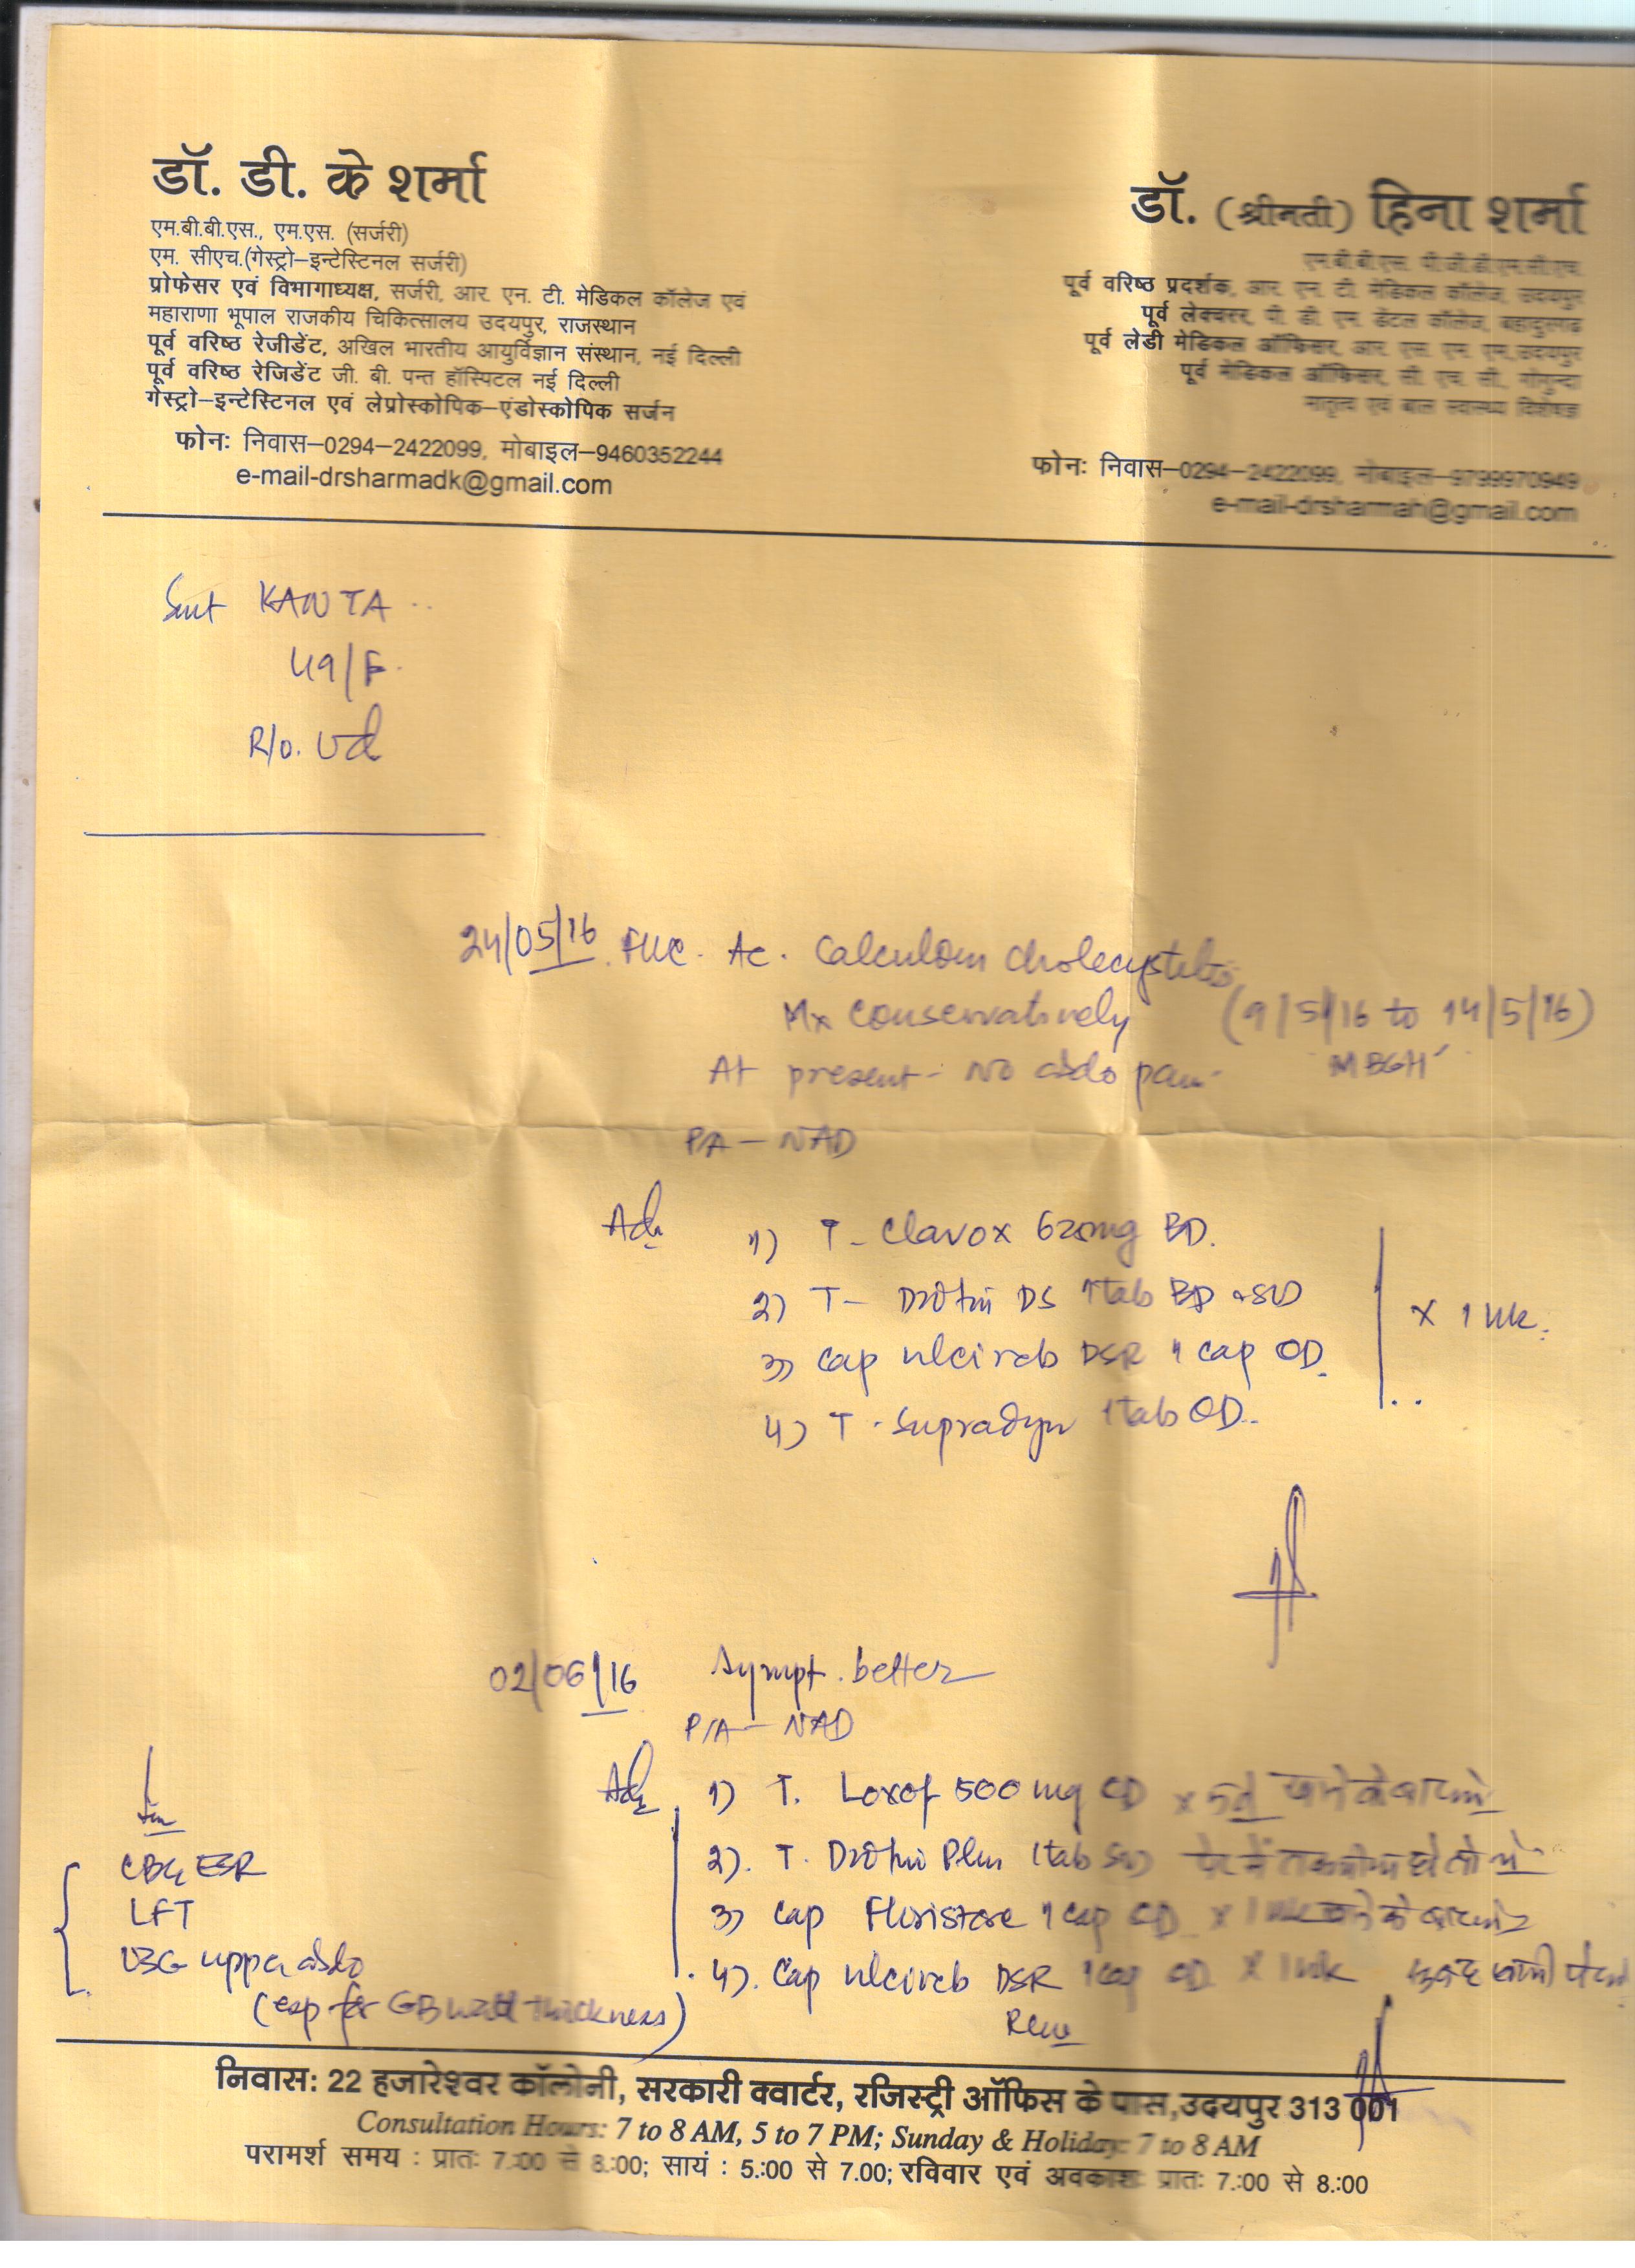 डॉ. डी. के शर्मा
एम.बी.बी.एस., एम.एस. (सर्जरी)
एम. सीएच.(गेस्ट्रो–इन्टेस्टिनल सर्जरी)
प्रोफेसर एवं विभागाध्यक्ष, सर्जरी, आर. एन. टी. मेडिकल कॉलेज एवं
महाराणा भूपाल राजकीय चिकित्सालय उदयपुर, राजस्थान
पूर्व वरिष्ठ रेजीडेंट, अखिल भारतीय आयुर्विज्ञान संस्थान, नई दिल्ली
पूर्व वरिष्ठ रेजिडेंट जी. बी. पन्त हॉस्पिटल नई दिल्ली
गेस्ट्रो–इन्टेस्टिनल एवं लेप्रोस्कोपिक–एंडोस्कोपिक सर्जन
फोनः निवास–0294–2422099, मोबाइल–9460352244
e-mail-drsharmadk@gmail.com
डॉ. (श्रीमती) हिना शर्मा
एम.बी.बी.एस. पी.जी.डी.एम.सी.एच.
पूर्व वरिष्ठ प्रदर्शक, आर. एन. टी. मेडिकल कॉलेज, उदयपुर
पूर्व लेक्चरर, पी. डी. एम. डेंटल कॉलेज, बहादुरगढ
पूर्व लेडी मेडिकल ऑफिसर, आर. एस. एम. एम.,उदयपुर
पूर्व मेडिकल ऑफिसर, सी. एच. सी. गोगुन्दा
मातृत्व एवं बाल स्वास्थ्य विशेषज्ञ
फोनः निवास–0294–2422099, मोबाइल–9799970949
e-mail-drsharmah@gmail.com
Smt KANTA
49/F.
R/o. Ud
24/05/16 FUC. Ac. Calculous cholecystitis
Mx Conservatively (9/5/16 to 14/5/16)
At present - No abdo pain. MBGH
PA – NAD
Adv 1) T- Clavox 625mg BD.
2) T- Drotin DS 1tab BD
3) Cap DSR 1 cap OD.
4) T. Supradyn 1tab OD.
x 1 wk.
02/06/16 Sympt. better
P/A – NAD
Adv 1) T. Loxof 500 mg OD x 5d खाने के बाद में
2). T. Drotin Plus 1tab
3) Cap Floristore 1 cap OD x 1 wk खाने के बाद में
4). Cap DSR 1cap OD x 1 wk सुबह खाली पेट
Inv
CBC ESR
LFT
USG upper abdo
(esp for GB wall thickness)
निवास: 22 हजारेश्वर कॉलोनी, सरकारी क्वार्टर, रजिस्ट्री ऑफिस के पास,उदयपुर 313 001
Consultation Hours: 7 to 8 AM, 5 to 7 PM; Sunday & Holiday: 7 to 8 AM
परामर्श समय : प्रातः 7.:00 से 8.:00; सायं : 5.:00 से 7.00; रविवार एवं अवकाशः प्रातः 7.:00 से 8.:00